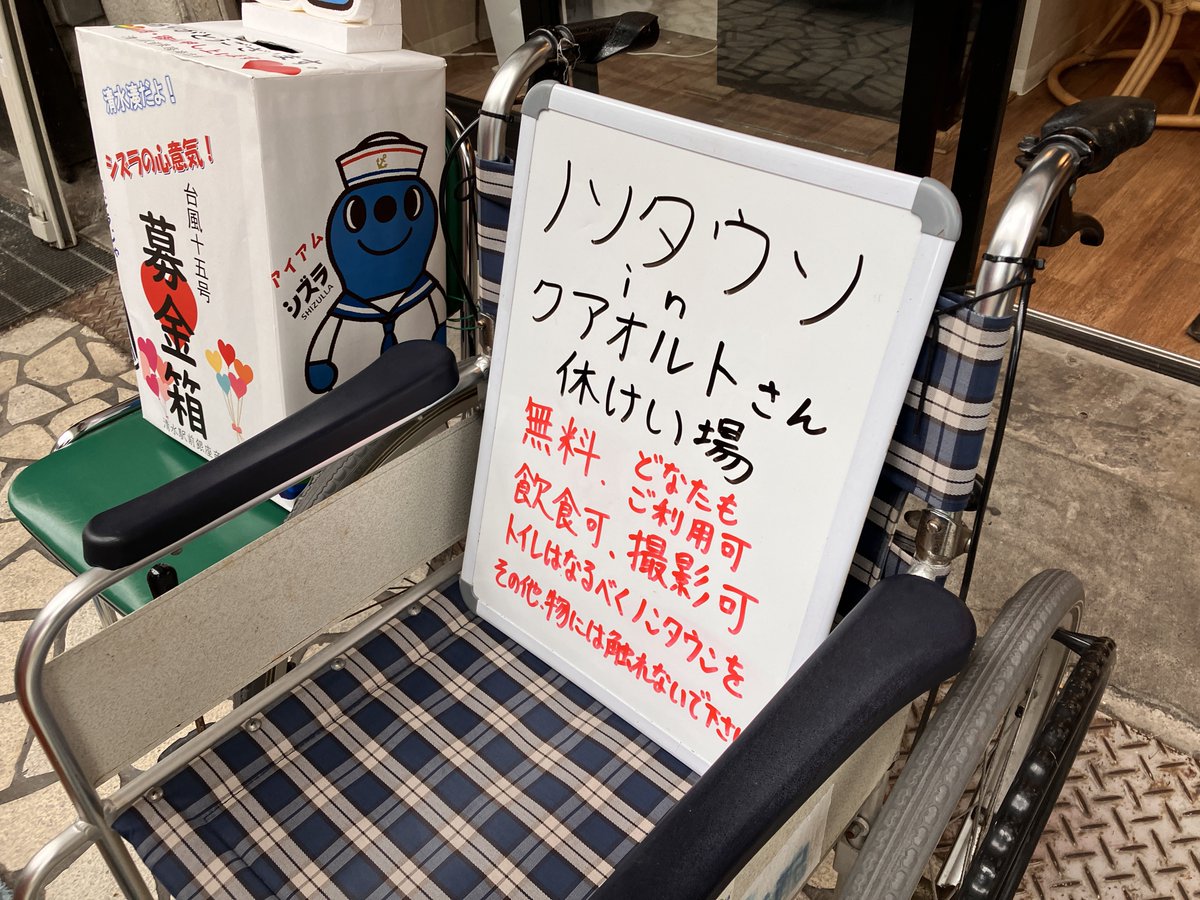 清水湊だよ！
シズラの心意気！
台風十五号
募金箱
清水駅前銀座
アイアム
シズラ
SHIZULLA
ノンタウン
in
クアオルトさん
休けい場
無料、どなたも
ご利用可
飲食可、撮影可
トイレはなるべくノンタウンを
その他、物には触れないで下さい